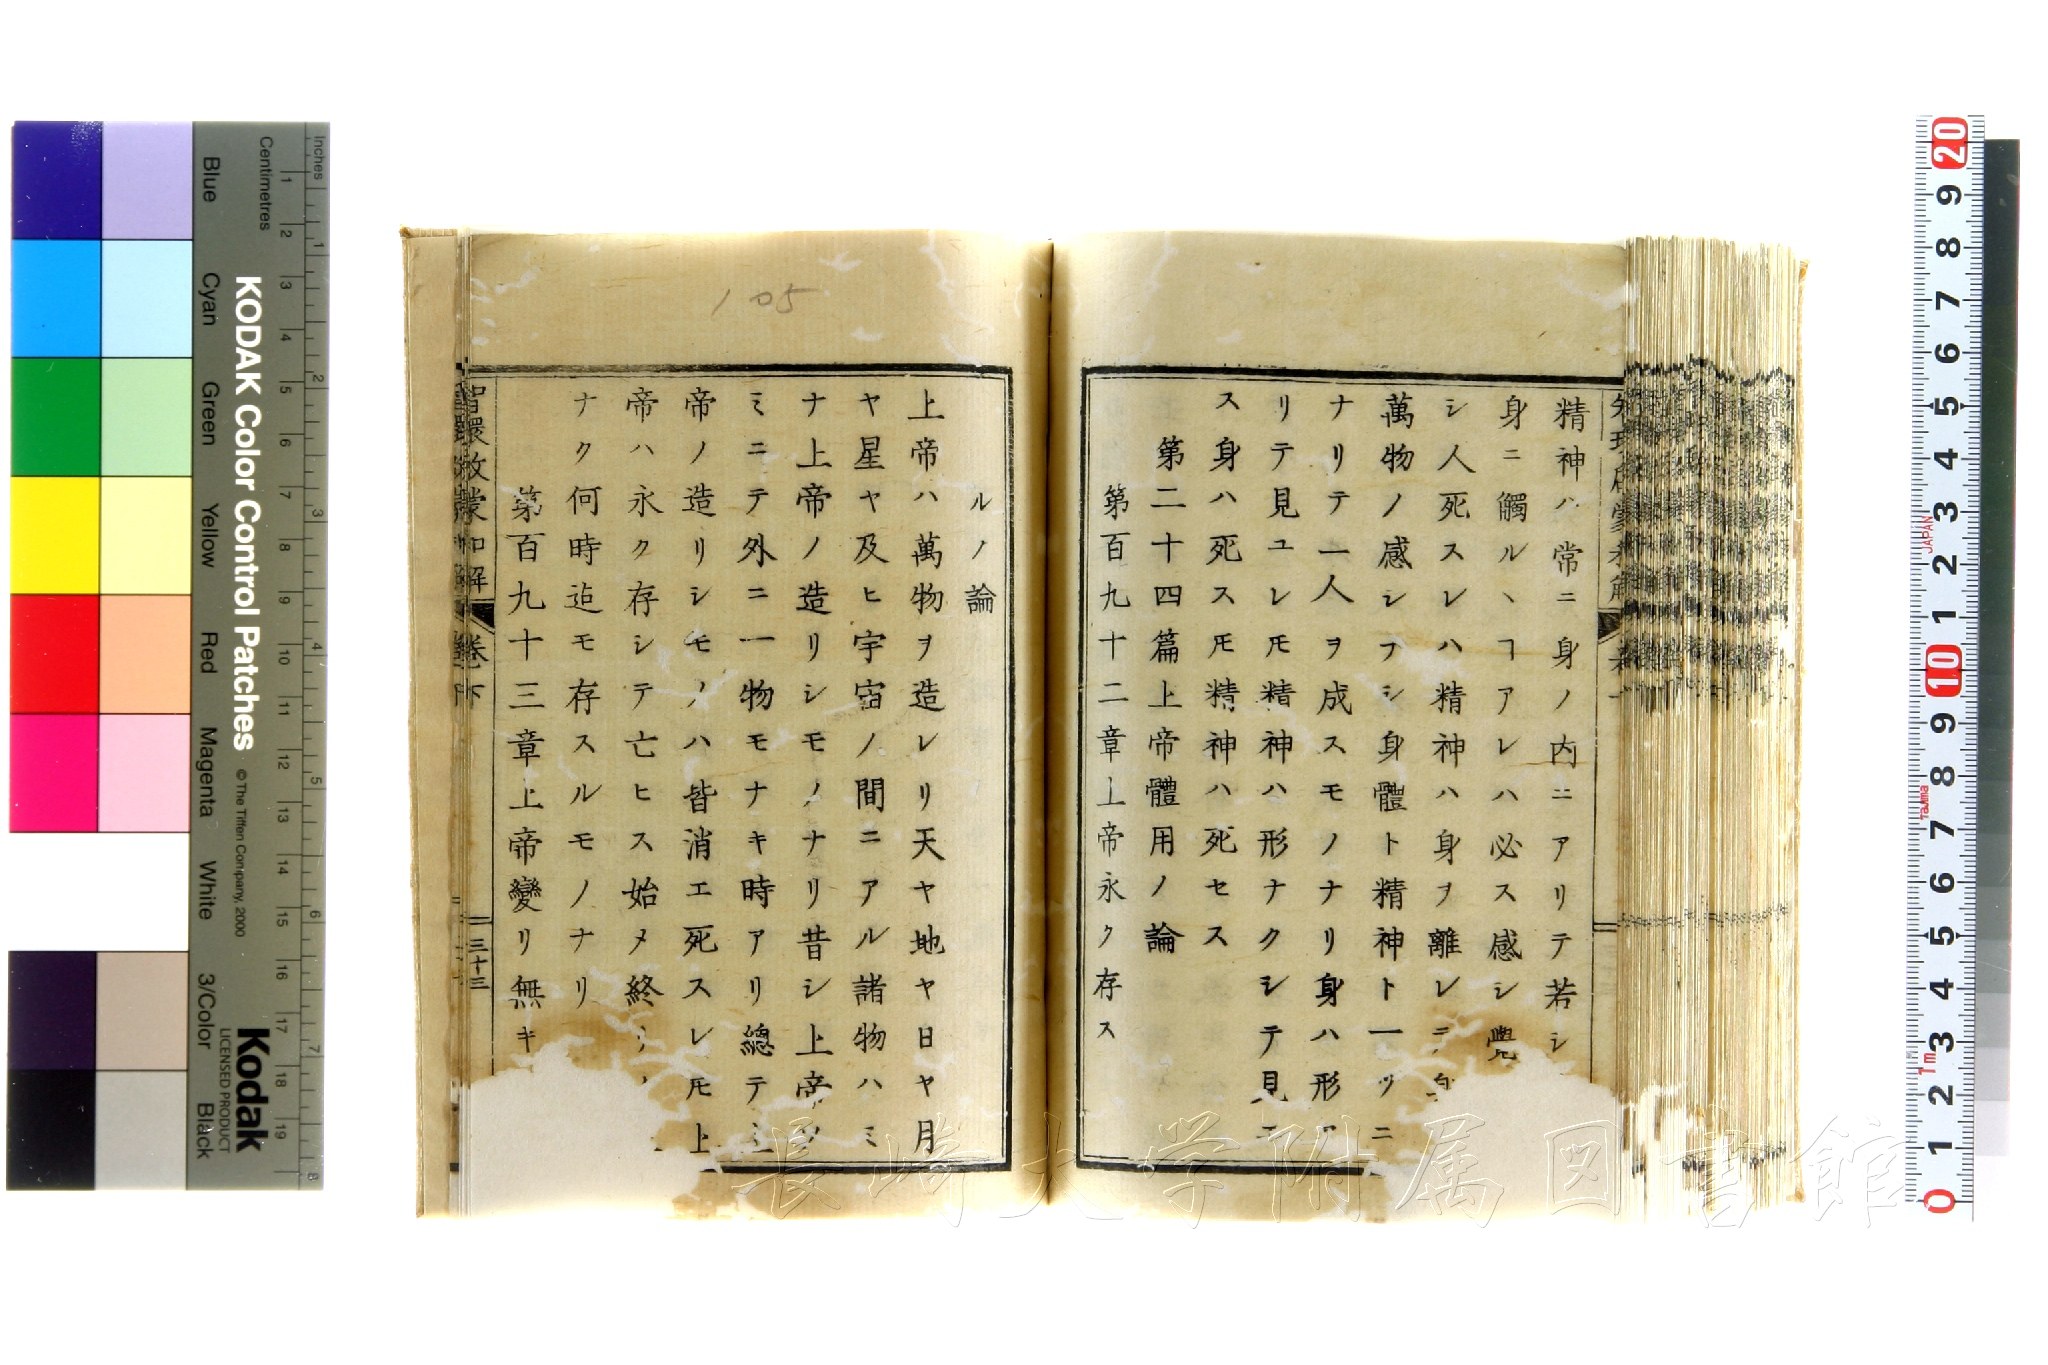 精神ハ常ニ身ノ内ニアリテ若シ
身ニ觸ルヽヿアレハ必ス感シ覺
シ人死スレハ精神ハ身ヲ離レテ
萬物ノ感シナシ身體ト精神ト一ツニ
ナリテ一人ヲ成スモノナリ身ハ形ア
リテ見ユレ𪜈精神ハ形ナクシテ見エ
ス身ハ死ス𪜈精神ハ死セス
第二十四篇上帝體用ノ論
第百九十二章上帝永ク存ス
ルノ論
上帝ハ萬物ヲ造レリ天ヤ地ヤ日ヤ月
ヤ星ヤ及ヒ宇宙ノ間ニアル諸物ハミ
ナ上帝ノ造リシモノナリ昔シ上帝ノ
ミニテ外ニ一物モナキ時アリ總テ
帝ノ造リシモノハ皆消エ死スレ𪜈上
帝ハ永ク存シテ亡ヒス始メ終
ナク何時迠モ存スルモノナリ
第百九十三章上帝變リ無キ
智環啟蒙和解 卷下
三十三
105
KODAK Color Control Patches
© The Tiffen Company, 2000
Kodak
LICENSED PRODUCT
Inches
Centimetres
1 2 3 4 5 6 7 8
1 2 3 4 5 6 7 8 9 10 11 12 13 14 15 16 17 18 19
Blue
Cyan
Green
Yellow
Red
Magenta
White
3/Color
Black
20 9 8 7 6 5 4 3 2 1 10 9 8 7 6 5 4 3 2 1 0
JAPAN
Tajima
1m
長崎大学附属図書館